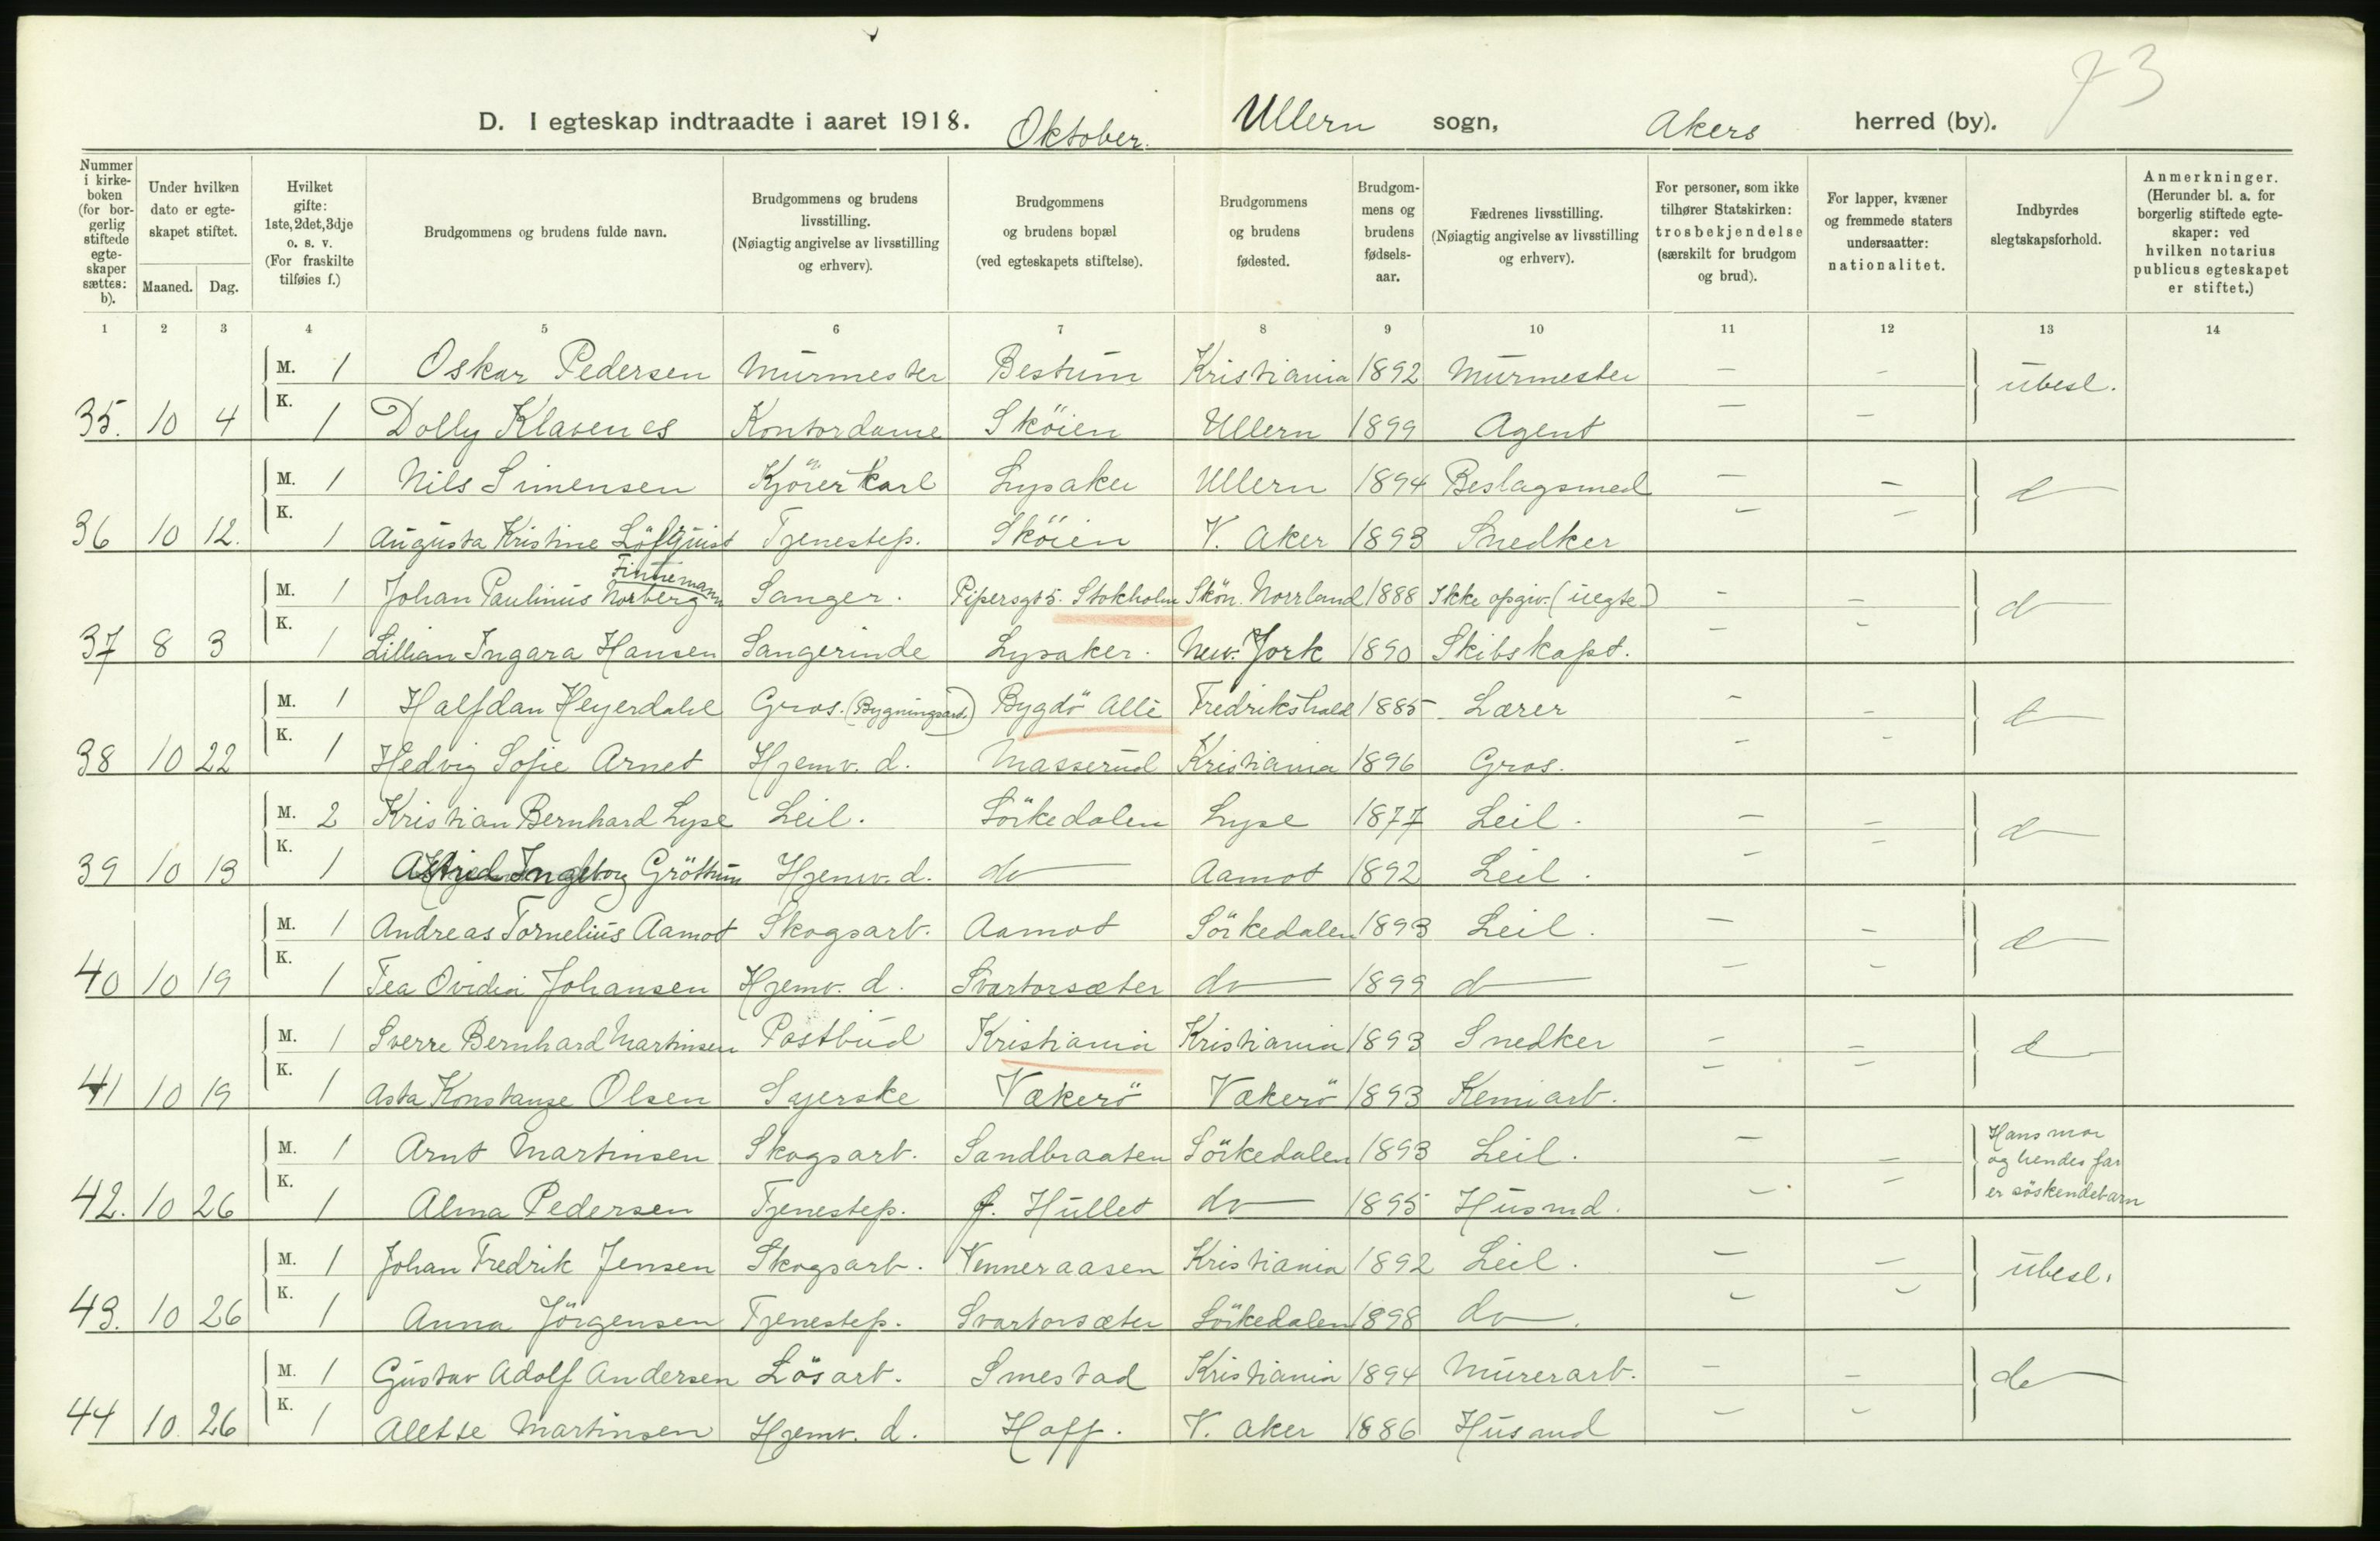 73
D. I egteskap indtraadte i aaret 1918. Oktober. Ullern sogn, Akers herred (by).
Nummer i kirke-boken (for bor-gerlig stiftede egte-skaper sættes: b).
Under hvilken dato er egte-skapet stiftet.
Maaned. Dag.
Hvilket gifte: 1ste, 2det, 3dje o. s. v. (For fraskilte tilføies f.)
Brudgommens og brudens fulde navn.
Brudgommens og brudens livsstilling. (Nøiagtig angivelse av livsstilling og erhverv).
Brudgommens og brudens bopæl (ved egteskapets stiftelse).
Brudgommens og brudens fødested.
Brudgom-mens og brudens fødsels-aar.
Fædrenes livsstilling. (Nøiagtig angivelse av livsstilling og erhverv).
For personer, som ikke tilhører Statskirken: trosbekjendelse (særskilt for brudgom og brud).
For lapper, kvæner og fremmede staters undersaatter: nationalitet.
Indbyrdes slegtskapsforhold.
Anmerkninger. (Herunder bl. a. for borgerlig stiftede egte-skaper: ved hvilken notarius publicus egteskapet er stiftet.)
1 2 3 4 5 6 7 8 9 10 11 12 13 14
M. 1 Oskar Pedersen Murmester Bestum Kristiania 1892 Murmester — — ubesl.
35. 10 4 K. 1 Dolly Klavenes Kontordame Sköien Ullern 1899 Agent — —
M. 1 Nils Simensen Kjörerkarl Lysaker Ullern 1894 Beslagsmed — — d
36 10 12. K. 1 Augusta Kristine Löfquist Tjenestep. Sköien V. Aker 1893 Snedker — —
Finnemann
M. 1 Johan Paulinus Norberg Sanger. Pipersgt 5. Stokholm Skön. Norrland 1888 Ikke opgiv. (uegte) — — d
37 8 3 K. 1 Lillian Ingara Hansen Sangerinde Lysaker. New. York 1890 Skibskapt. — —
M. 1 Halfdan Heyerdahl Gros. (Bygningsart.) Bygdö Alle Fredrikshald 1885 Lærer — — d
38 10 22 K. 1 Hedvig Sofie Arnet Hjemv. d. Masserud Kristiania 1896 Gros. — —
M. 2 Kristian Bernhard Lyse Leil. Sörkedalen Lyse 1877 Leil. — — d
39 10 13 K. 1 Astrid Ingeborg Gröttum Hjemv. d. do Aamot 1892 Leil. — —
M. 1 Andreas Tornelius Aamot Skogsarb. Aamot Sörkedalen 1893 Leil. — — d
40 10 19 K. 1 Tea Ovidia Johansen Hjemv. d. Svartorsæter do 1899 d — —
M. 1 Sverre Bernhard Martinsen Postbud Kristiania Kristiania 1893 Snedker — — d
41 10 19 K. 1 Asta Konstanse Olsen Syerske Vækerö Vækerö 1893 Kemiarb. — —
M. 1 Arnt Martinsen Skogsarb. Sandbraaten Sörkedalen 1893 Leil. — — Hans mor og hendes far er söskendebarn
42. 10 26 K. 1 Alma Pedersen Tjenestep. Hullet do 1895 Husmd. — —
M. 1 Johan Fredrik Jensen Skogsarb. Venneraasen Kristiania 1892 Leil. — — ubesl.
43. 10 26 K. 1 Anna Jörgensen Tjenestep. Svartorsæter Sörkedalen 1898 do. — —
M. 1 Gustav Adolf Andersen Lösarb. Smestad Kristiania 1894 Murerarb. — — do
44 10 26 K. 1 Alette Martinsen Hjemv. d. Hoff. V. Aker 1886 Husmd — —